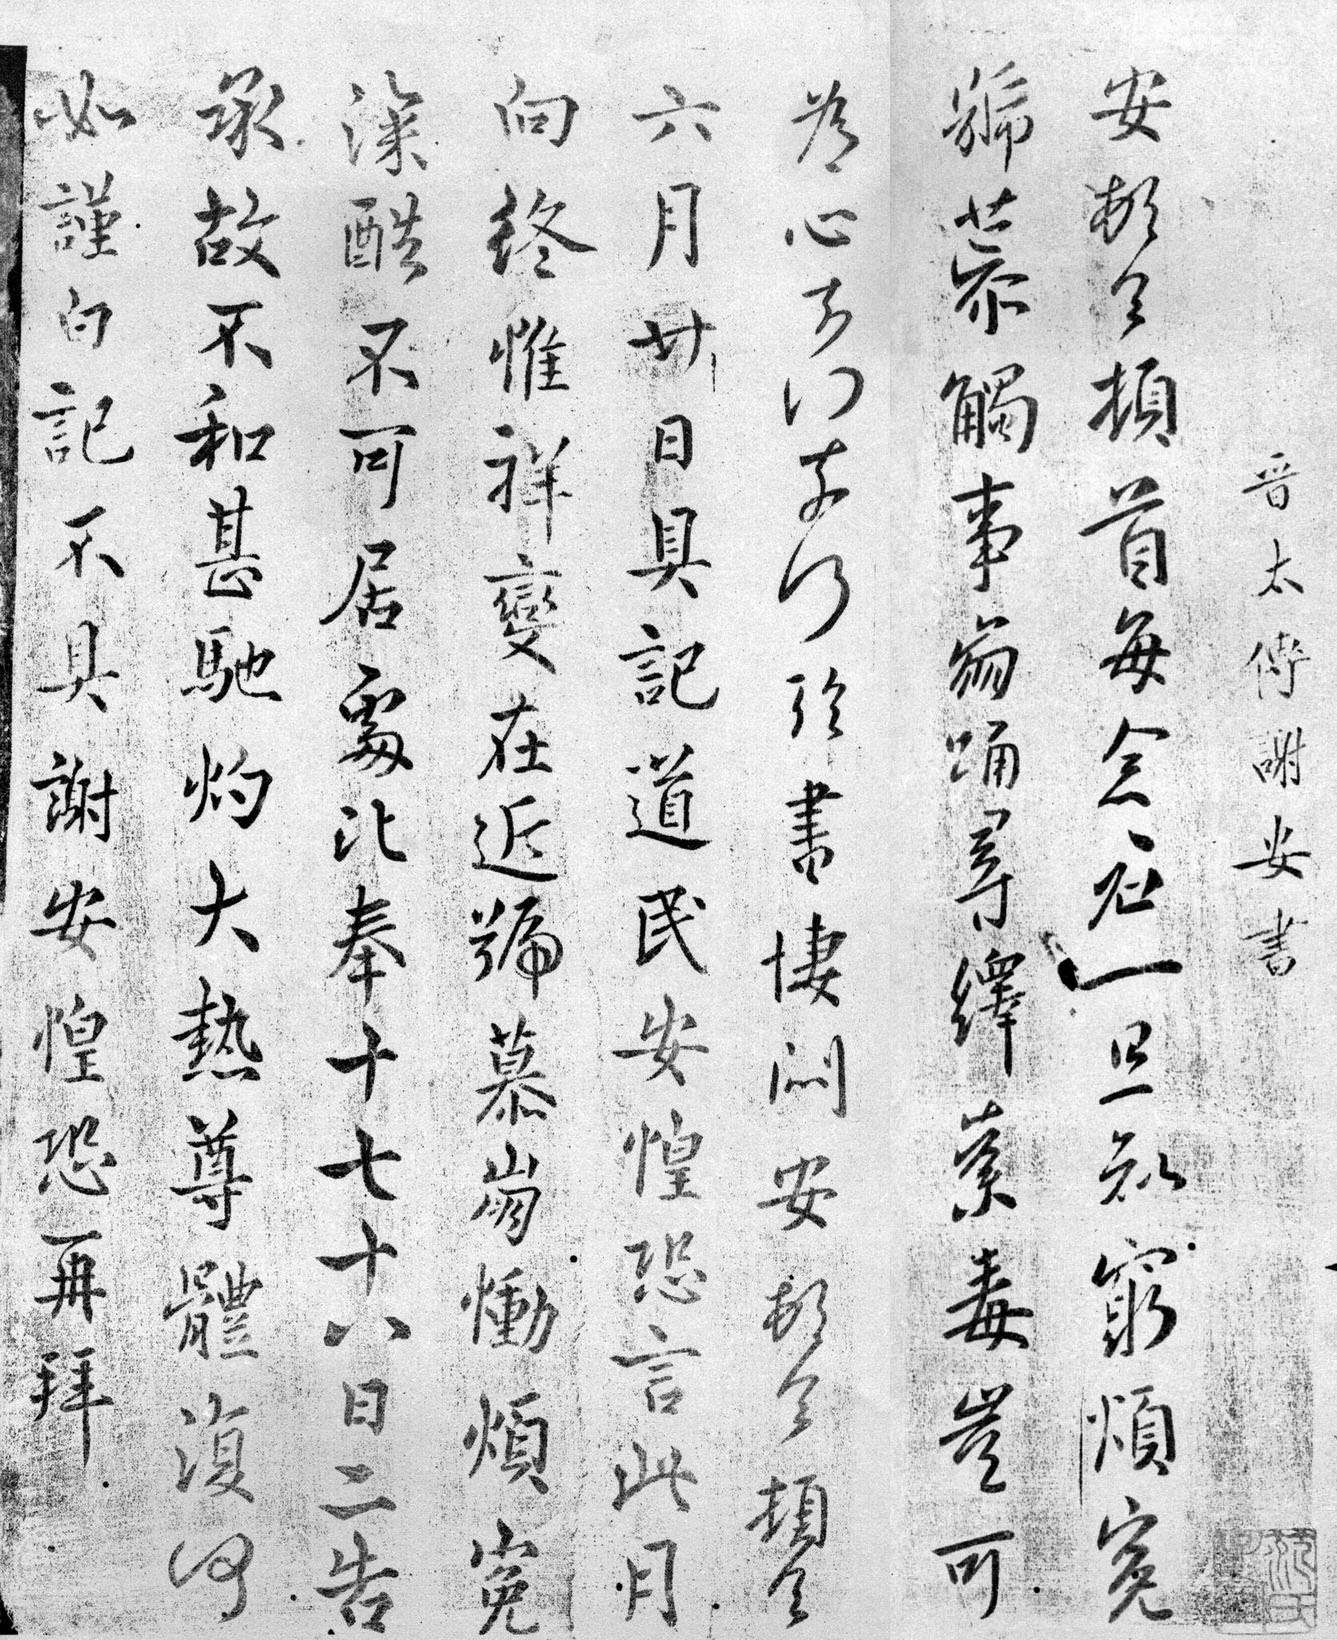 晋太傅謝安書
安頓首頓首每念君一旦知窮煩冤
號慕觸事崩踴尋繹荼毒豈可
為心奈何奈何臨書悽悶安頓首頓首
六月廿日具記道民安惶恐言此月
向終惟祥變在近號慕崩慟煩冤
深酷不可居處比奉十七十八日二告
承故不和甚馳灼大熱尊體復何
如謹白記不具謝安惶恐再拜